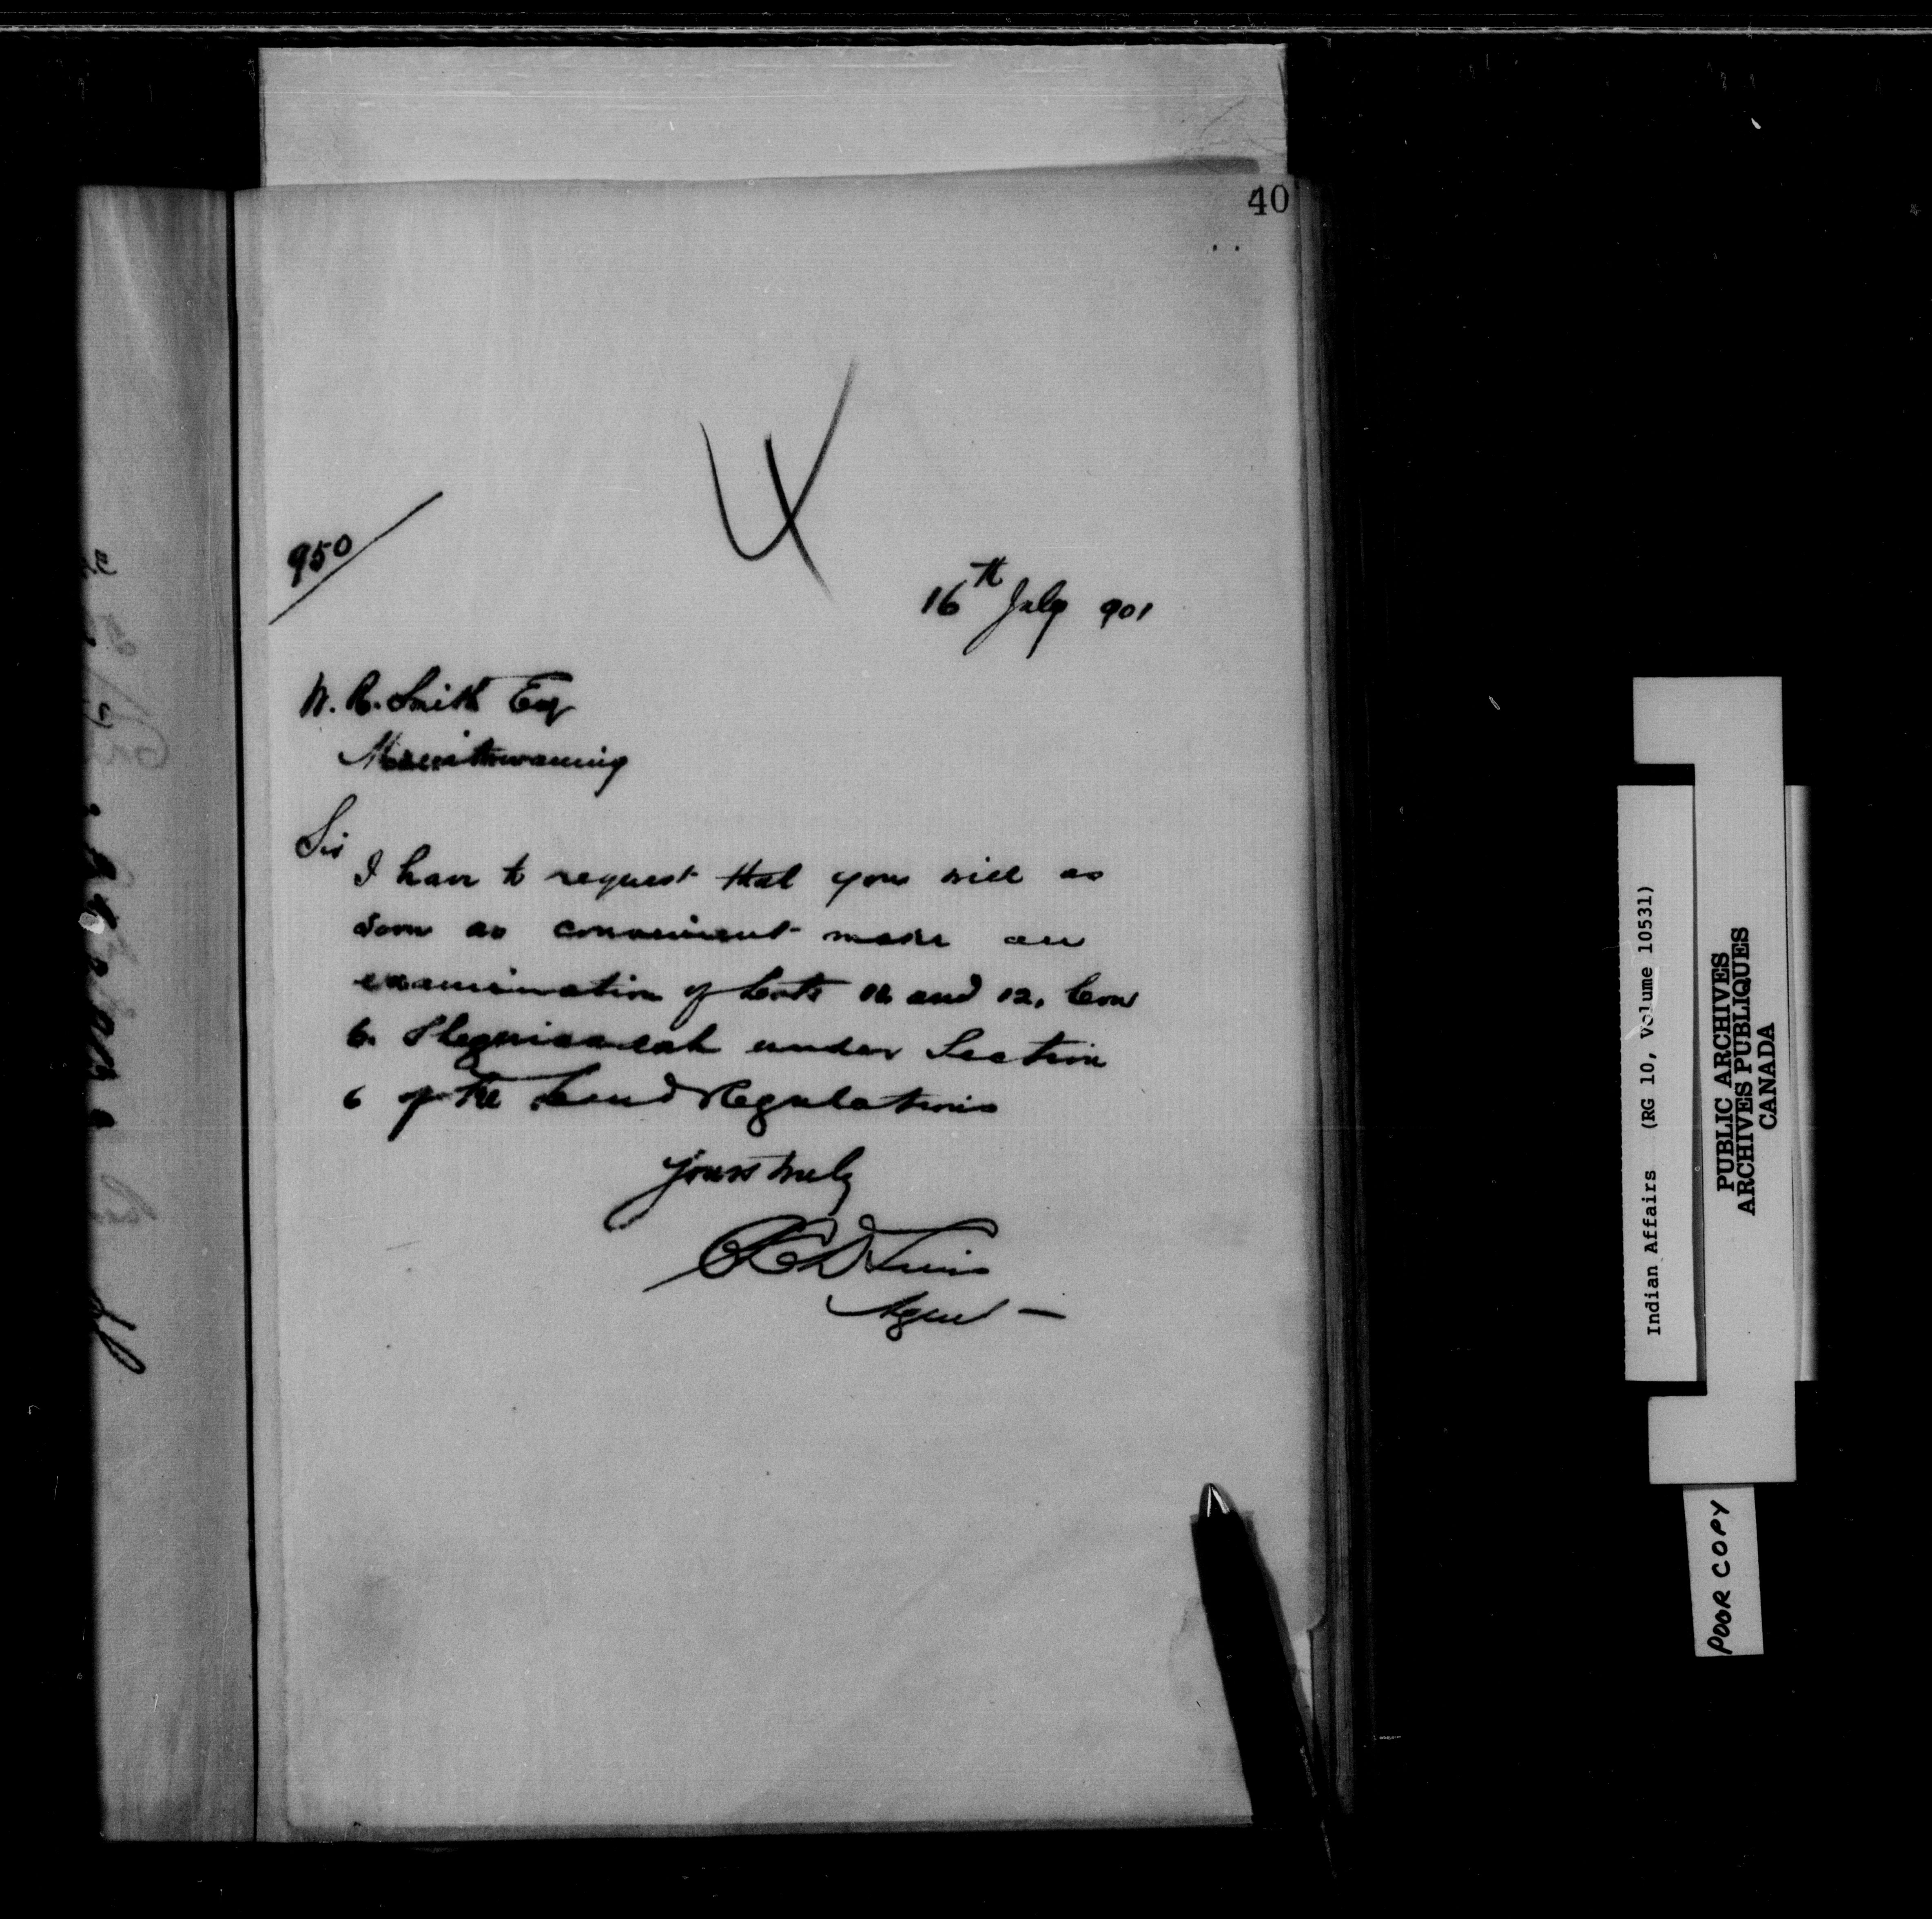 40
4
950
16th July 901
W. R. Smith Esq
Manitowaning
Sir
I have to request that you will as
soon as convenient make an
examination of Lots and 12, Con
6. Sheguiandah under Section
6 of the Land Regulations
Yours truly
Agent
Indian Affairs (RG 10, Volume 10531)
PUBLIC ARCHIVES
ARCHIVES PUBLIQUES
CANADA
POOR COPY